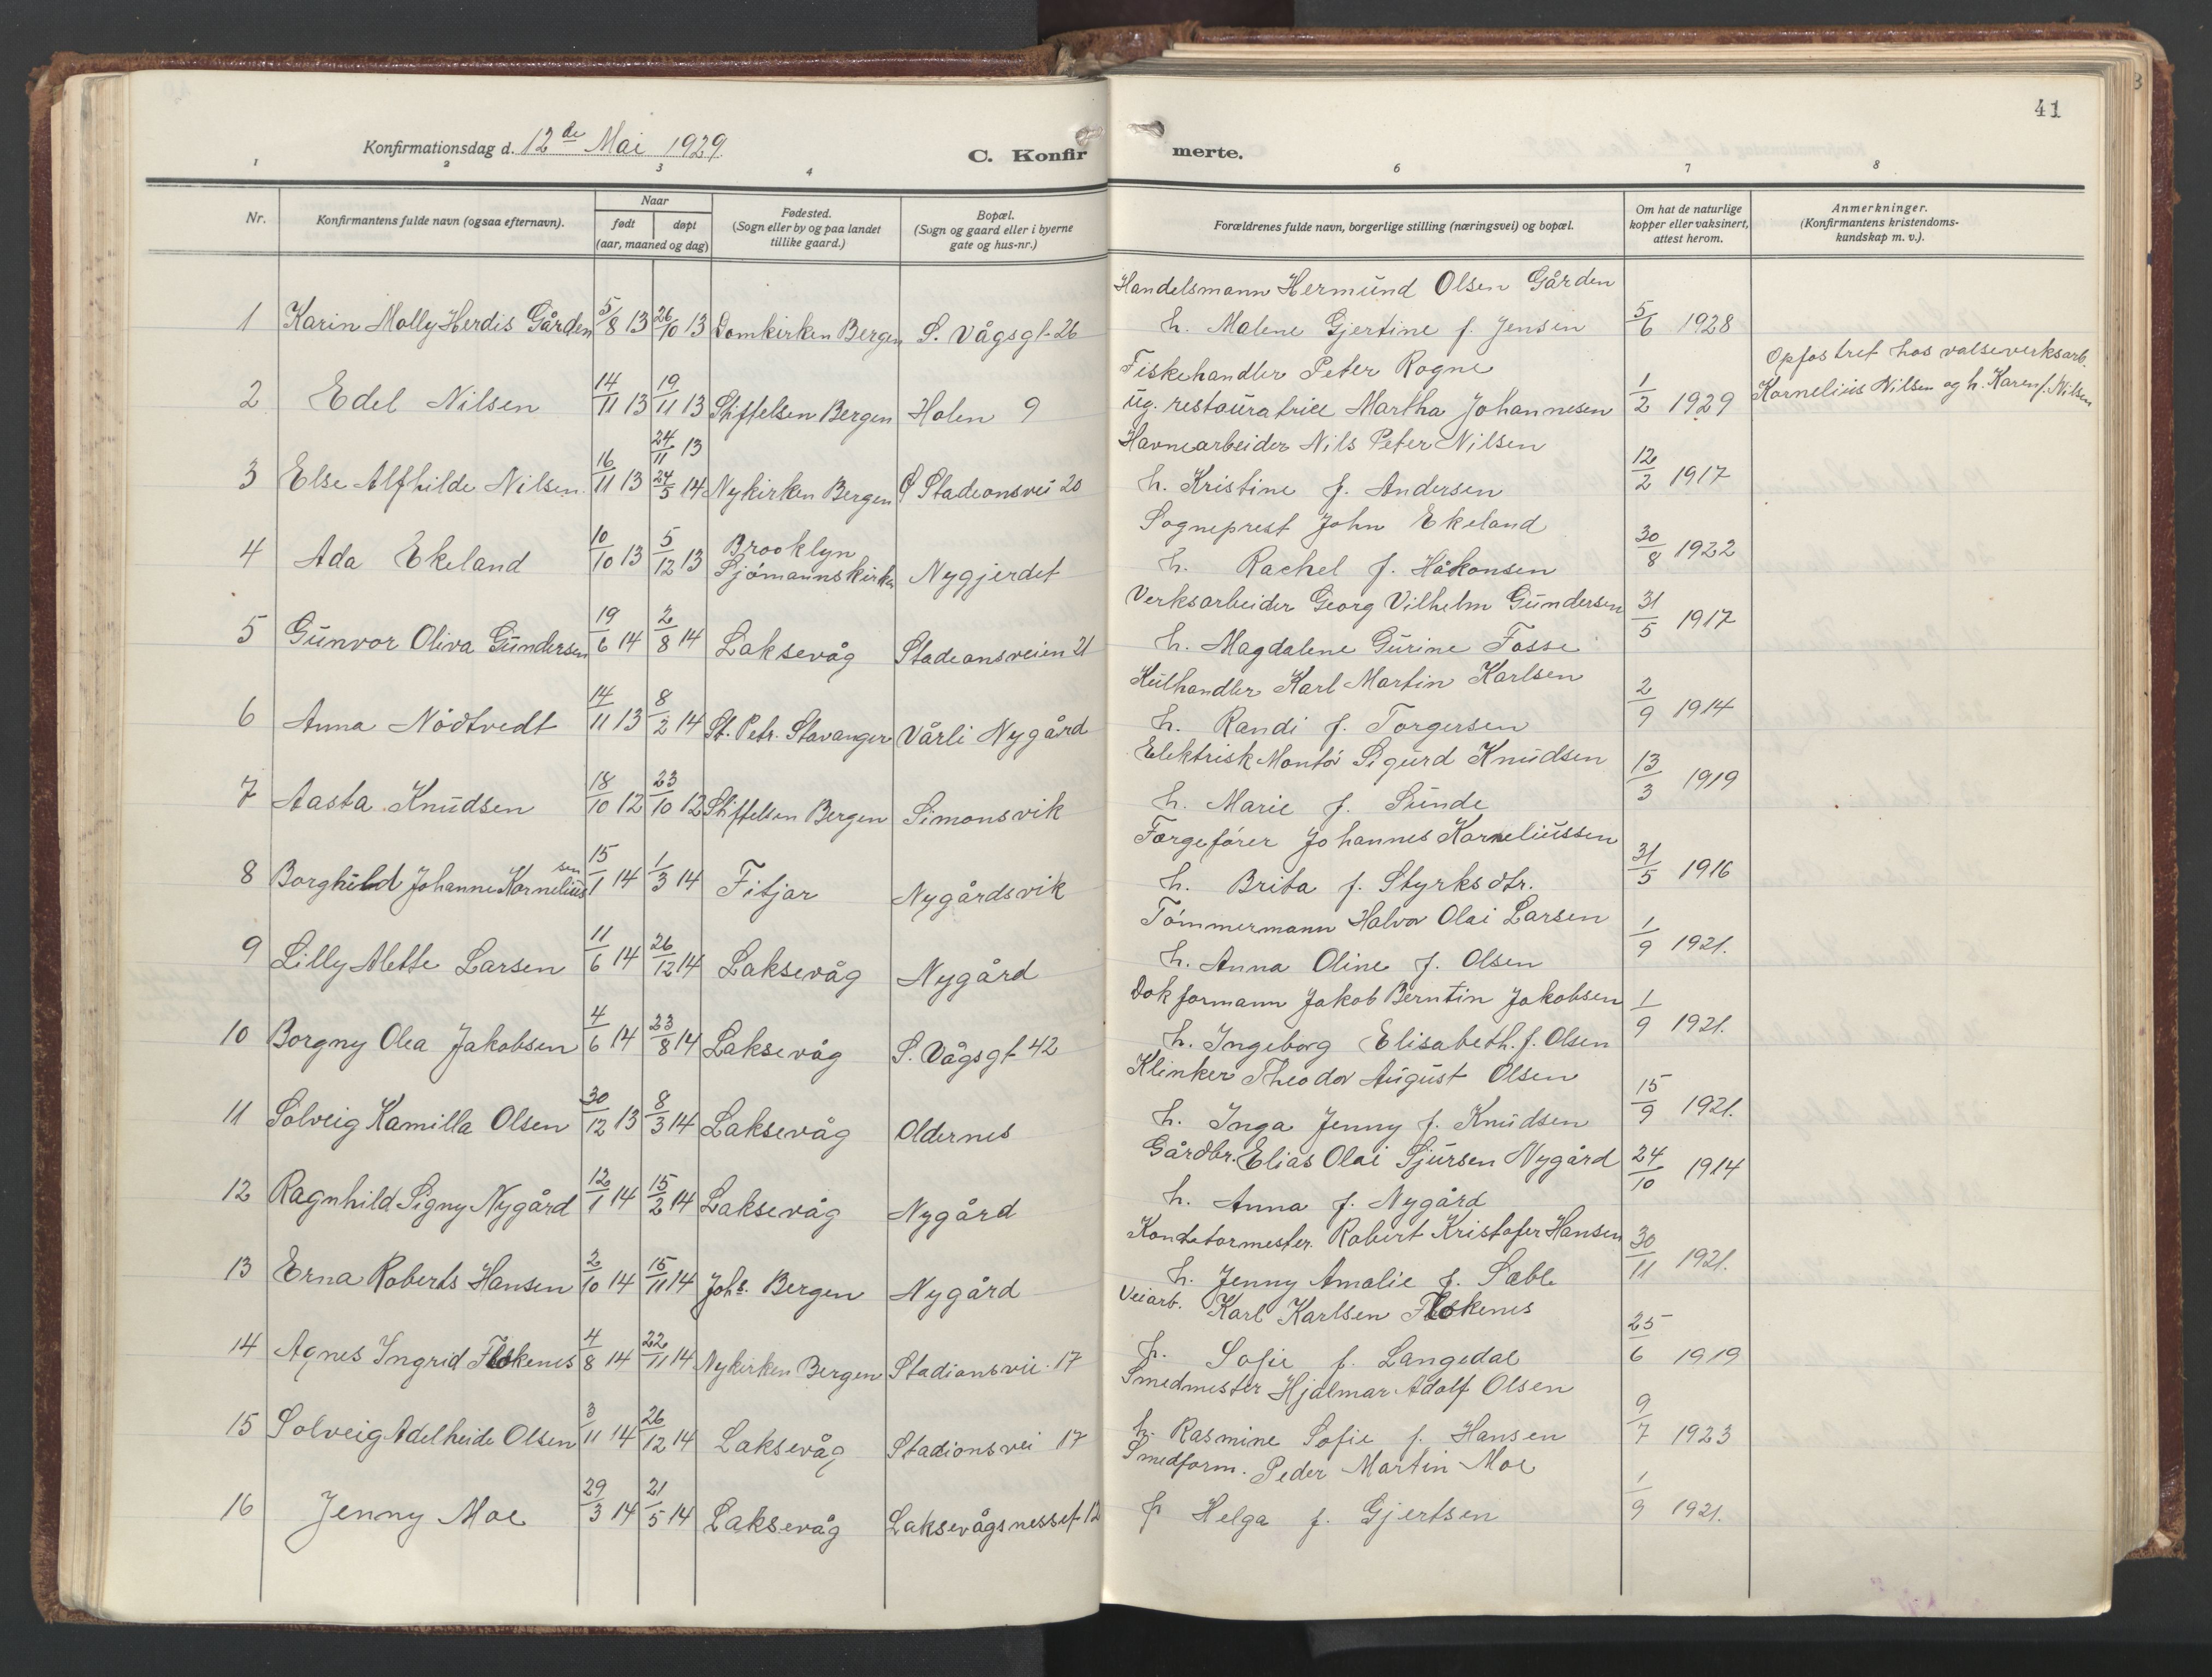 41
Konfirmationsdag d. 12de Mai 1929.
C. Konfirmerte.
1 2 3 4 6 7 8
Nr. | Konfirmantens fulde navn (ogsaa efternavn). | Naar født døpt (aar, maaned og dag) | Fødested. (Sogn eller by og paa landet tillike gaard.) | Bopæl. (Sogn og gaard eller i byerne gate og hus-nr.) | Forældrenes fulde navn, borgerlige stilling (næringsvei) og bopæl. | Om hat de naturlige kopper eller vaksinert, attest herom. | Anmerkninger. (Konfirmantens kristendoms-kundskap m. v.).
1 Karin Molly Herdis Gården 5/8 13 26/10 13 Domkirken Bergen S. Vågsgt. 26 Handelsmann Hermund Olsen Gården h. Malene Gjertine f. Jensen 5/6 1928
2 Edel Nilsen 14/11 13 19/11 13 Stiftelsen Bergen Holen 9 Fiskehandler Peter Rogne ug. restauratrice Martha Johannesen 1/2 1929 Opfostret hos valseverksarb. Kornelius Nilsen og h. Karen f. Nilsen
3 Else Alfhilde Nilsen 16/11 13 24/11 13 24/5 14 Nykirken Bergen Stadeonsvei 20 Havnearbeider Nils Peter Nilsen h. Kristine f. Andersen 12/2 1917
4 Ada Ekeland 10/10 13 5/12 13 Brooklyn Sjömannskirken Nygjerdet Sogneprest John Ekeland h. Rachel f. Håkonsen 30/8 1922
5 Gunvor Oliva Gundersen 19/6 14 2/8 14 Laksevåg Stadeonsveien 21 Verksarbeider Georg Vilhelm Gundersen h. Magdalene Gurine Fosse 31/5 1917
6 Anna Nödtvedt 14/11 13 8/2 14 St. Petr. Stavanger Vårli Nygård Kulhandler Karl Martin Karlsen h. Randi f. Torgersen 2/9 1914
7 Aasta Knudsen 18/10 12 23/10 12 Stiftelsen Bergen Simonsvik Elektrisk Montör Sigurd Knudsen h. Marie f. Sunde 13/3 1919
8 Borghild Johanne Korneliussen 15/1 14 1/3 14 Fitjar Nygårdsvik Forgefører Johannes Korneliussen h. Brita f. Styrksdtr. 31/5 1916
9 Lilly Mette Larsen 11/6 14 26/12 14 Laksevåg Nygård Tömmermann Halvor Olai Larsen h. Anna Oline f. Olsen 1/9 1921.
10 Borgny Olea Jakobsen 4/6 14 23/8 14 Laksevåg S. Vågsgt 42 Dokformann Jakob Berntin Jakobsen h. Ingeborg Elisabeth. f. Olsen 1/9 1921.
11 Solveig Kamilla Olsen 30/12 13 8/3 14 Laksevåg Oldernes Klinker Theodor August Olsen h. Inga Jenny f. Knudsen 15/9 1921.
12 Ragnhild Signy Nygård 12/1 14 15/2 14 Laksevåg Nygård Gårdbr. Elias Olai Sjursen Nygård h. Anna f. Nygård 24/10 1914
13 Erna Roberts Hansen 2/10 14 15/11 14 Johs. Bergen Nygård Konditormester. Robert Kristofer Hansen h. Jenny Amalie f. Sæble 30/11 1921.
14 Agnes Ingrid Flokenes 4/8 14 22/11 14 Nykirken Bergen Stadionsvei 17 Veiarb. Karl Karlsen Flokenes h. Sofie f. Langedal 25/6 1919
15 Solveig Adelheide Olsen 3/11 14 26/12 14 Laksevåg Stadionsvei 17 Smedmester Hjalmar Adolf Olsen h. Rasmine Sofie f. Hansen 9/7 1923
16 Jenny Moe 29/3 14 21/5 14 Laksevåg Laksevågsnesset 12 Smedform. Peder Martin Moe h Helga f. Gjertsen 1/9 1921.